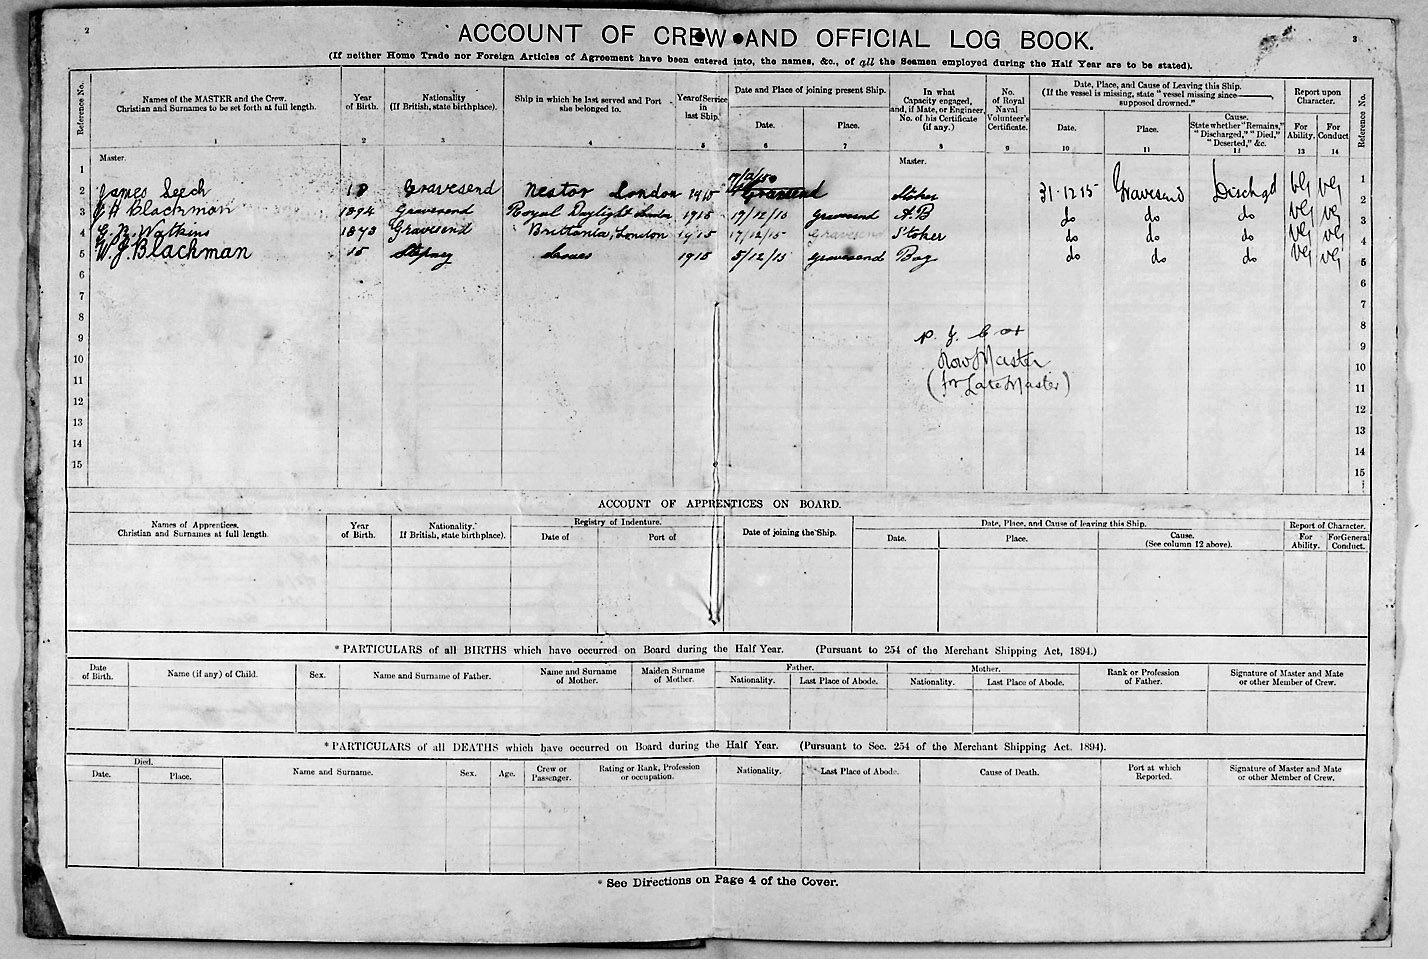 2
ACCOUNT OF CREW AND OFFICIAL LOG BOOK.
3
(If neither Home Trade nor Foreign Articles of Agreement have been entered into, the names, &c., of all the Seamen employed during the Half Year are to be stated).
Reference No.
Names of the MASTER and the Crew.
Christian and Surnames to be set forth at full length.
1
Year
of Birth.
2
Nationality
(If British, state birthplace).
3
Ship in which he last served and Port
she belonged to.
4
Year of Service
in
last Ship.
5
Date and Place of joining present Ship.
Date.
6
Place.
7
In what
Capacity engaged,
and, if Mate, or Engineer,
No. of his Certificate
(if any.)
8
No.
of Royal
Naval
Volunteer's
Certificate.
9
Date, Place, and Cause of Leaving this Ship.
(If the vessel is missing, state "vessel missing since
supposed drowned."
Date.
10
Place.
11
Cause.
State whether "Remains,"
"Discharged," "Died,"
"Deserted," &c.
12
Report upon
Character.
For
Ability.
13
For
Conduct
14
Reference No.
1 Master. Master. 1
2 James Leech 18 Gravesend Nestor London 1915 17/12/15 Gravesend Stoker 31-12-15 Gravesend Dischgd VG VG 2
3 Blackman 1894 Gravesend Royal Daylight London 1915 17/12/15 Gravesend AB do do do VG VG 3
4 Watkins 1873 Gravesend Brittania, London 1915 17/12/15 Gravesend Stoker do do do VG VG 4
5 W. J. Blackman 15 Stepney 1915 5/12/15 Gravesend Boy do do do VG VG 5
6 6
7 7
8 8
9 9
10 10
11 11
12 12
13 13
14 14
15 15
P. J.
Now Master
(for Late Master)
ACCOUNT OF APPRENTICES ON BOARD.
Names of Apprentices.
Christian and Surnames at full length.
Year
of Birth.
Nationality.
If British, state birthplace).
Registry of Indenture.
Date of
Port of
Date of joining the Ship.
Date, Place, and Cause of leaving this Ship.
Date.
Place.
Cause.
(See column 12 above).
Report of Character.
For
Ability.
For General
Conduct.
* PARTICULARS of all BIRTHS which have occurred on Board during the Half Year. (Pursuant to 254 of the Merchant Shipping Act, 1894.)
Date
of Birth.
Name (if any) of Child.
Sex.
Name and Surname of Father.
Name and Surname
of Mother.
Maiden Surname
of Mother.
Father.
Nationality.
Last Place of Abode.
Mother.
Nationality.
Last Place of Abode.
Rank or Profession
of Father.
Signature of Master and Mate
or other Member of Crew.
* PARTICULARS of all DEATHS which have occurred on Board during the Half Year. (Pursuant to Sec. 254 of the Merchant Shipping Act. 1894).
Died.
Date.
Place.
Name and Surname.
Sex.
Age.
Crew or
Passenger.
Rating or Rank, Profession
or occupation.
Nationality.
Last Place of Abode.
Cause of Death.
Port at which
Reported.
Signature of Master and Mate
or other Member of Crew.
* See Directions on Page 4 of the Cover.